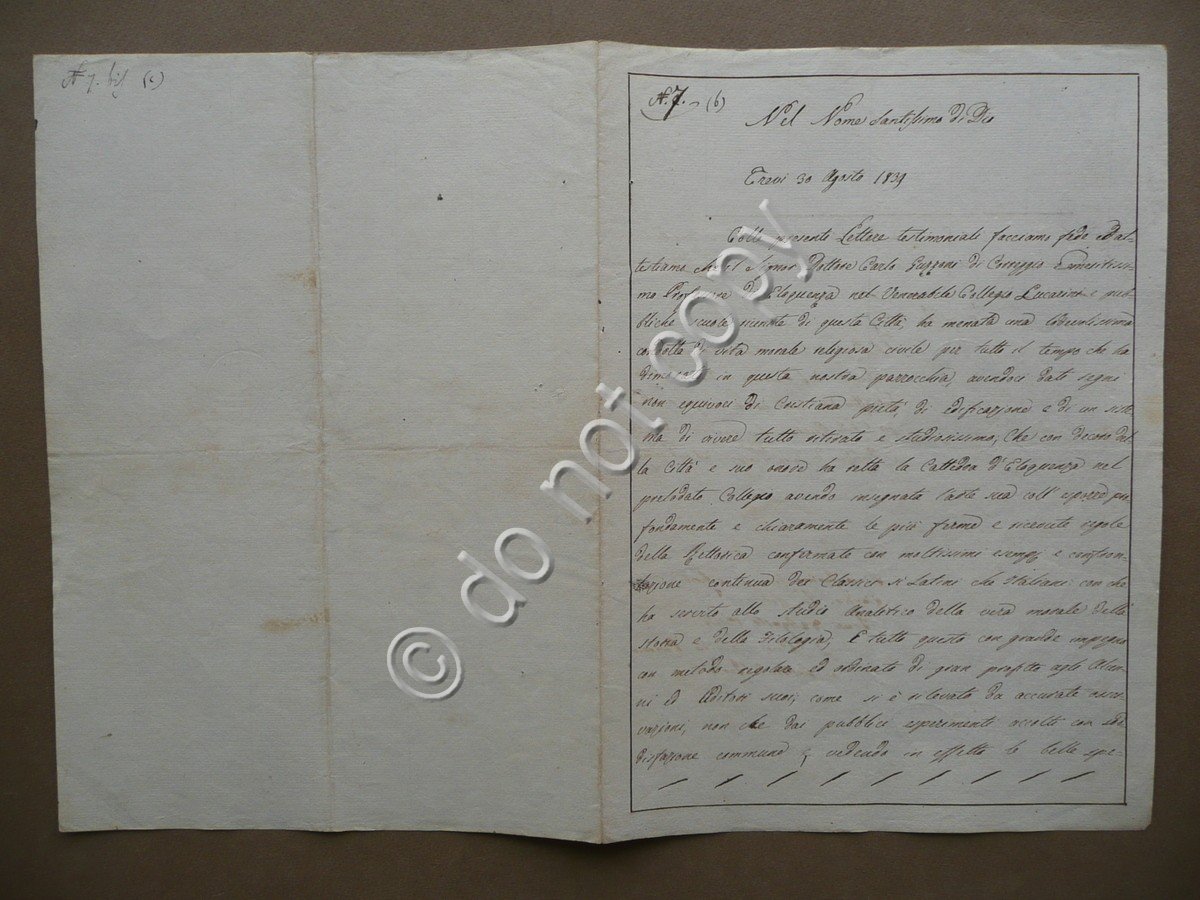 N. 7. bis (c)
N. 7. - (b)
Nel Nome Santissimo di Dio
Trevi 30 Agosto 1839
Colle presenti Lettere testimoniali facciamo fede ed at-
testiamo che il Signor Dottore Carlo Guzzoni di Correggio
mo Professore di Eloquenza nel Venerabile Collegio Lucarini e pub-
bliche scuole riunite di questa Città, ha menata una lodevolissima
condotta di vita morale religiosa civile per tutto il tempo che ha
dimorato in questa nostra parrocchia, avendoci dati segni
non equivoci di Cristiana pietà, di edificazione e di un siste-
ma di vivere tutto ritirato e studiosissimo; Che con decoro del-
la Città e suo onore ha retta la Cattedra d'Eloquenza nel
prelodato Collegio avendo insegnata l'arte sua coll' esporre pro-
fondamente e chiaramente le più ferme e ricevute regole
della Rettorica confermate con moltissimi esempj e confron-
tazione continua dei Classici sì Latini che Italiani: con che
ha servito allo studio Analitico della vera morale della
storia e della Filologia; E tutto questo con grande impegno
con metodo regolare ed ordinato di gran profitto agli Alun-
ni ed Uditori suoi; come si è rilevato da accurate osser-
vazioni, non che dai pubblici esperimenti accolti con sod-
disfazione comune; vedendo in effetto le belle spe-
do not copy
©